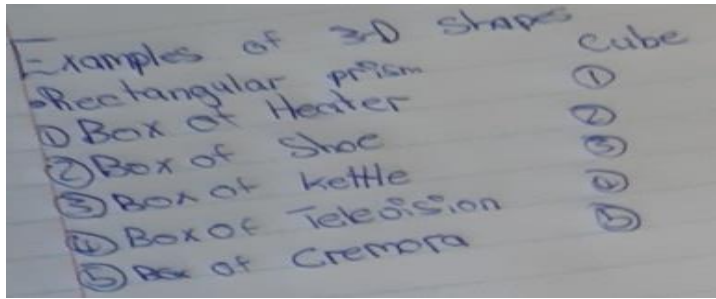 Examples of 3-D Shapes
•Rectangular prism Cube
① Box of Heater ①
② Box of Shoe ②
③ Box of Kettle ③
④ Box of Television ④
⑤ Box of Cremora ⑤